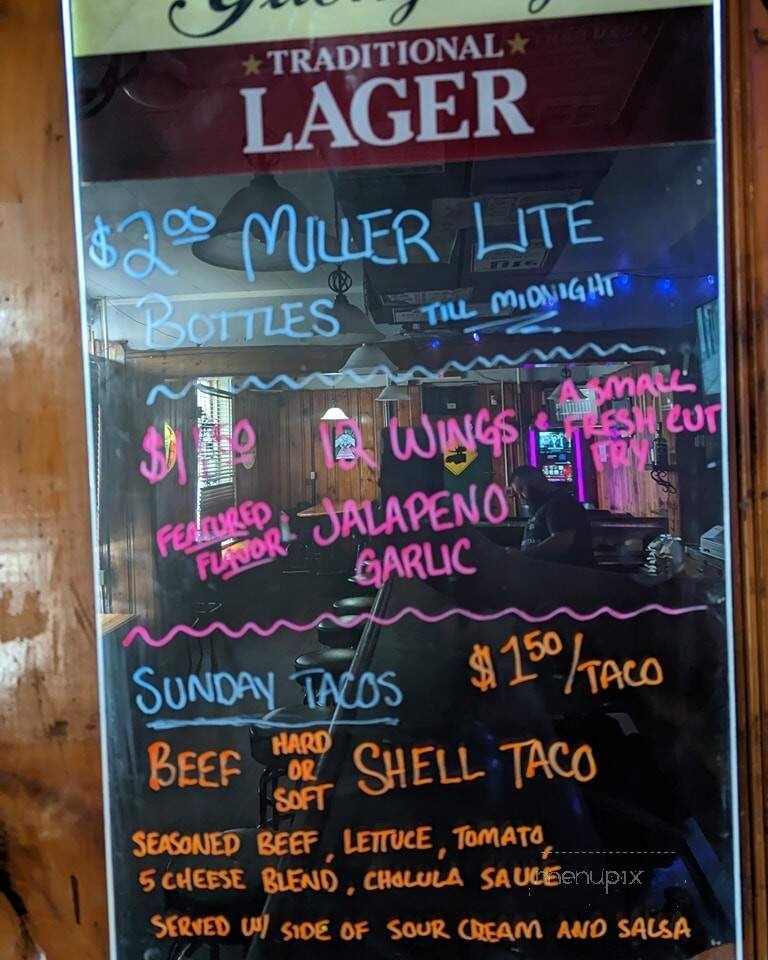 TRADITIONAL
LAGER
$2.00 MILLER LITE
BOTTLES TILL MIDNIGHT
$11.50 12 WINGS & A SMALL FRESH CUT FRY
FEATURED FLAVOR: JALAPENO GARLIC
SUNDAY TACOS $1.50/TACO
BEEF HARD OR SOFT SHELL TACO
SEASONED BEEF, LETTUCE, TOMATO,
5 CHEESE BLEND, CHOLULA SAUCE
SERVED W/ SIDE OF SOUR CREAM AND SALSA
menupix